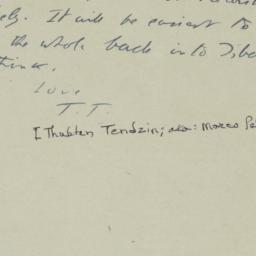 ely. It will be easiest to
the whole back into Tibe
think.
Love
T.T.
[Thubten Tendzin; aka: Marco Pa